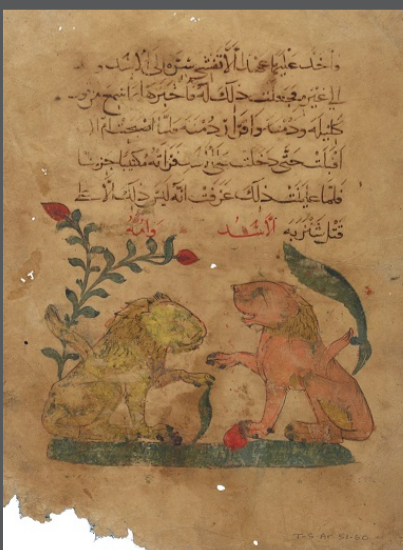 واخذ عليها عهدا ألا تفشي سره إلى الاسد
ذلك له فاخبرها بما سمع من
كليله ودمنه واقرار دمنه فلما اصبحت ام
اقبلت حتى دخلت على الاسد فراته مكتيبا حزينا
فلما عاينت ذلك عرفت انه ليس ذلك الا على
قتل شنزبه الاسد وامه
T-S Ar 51.60